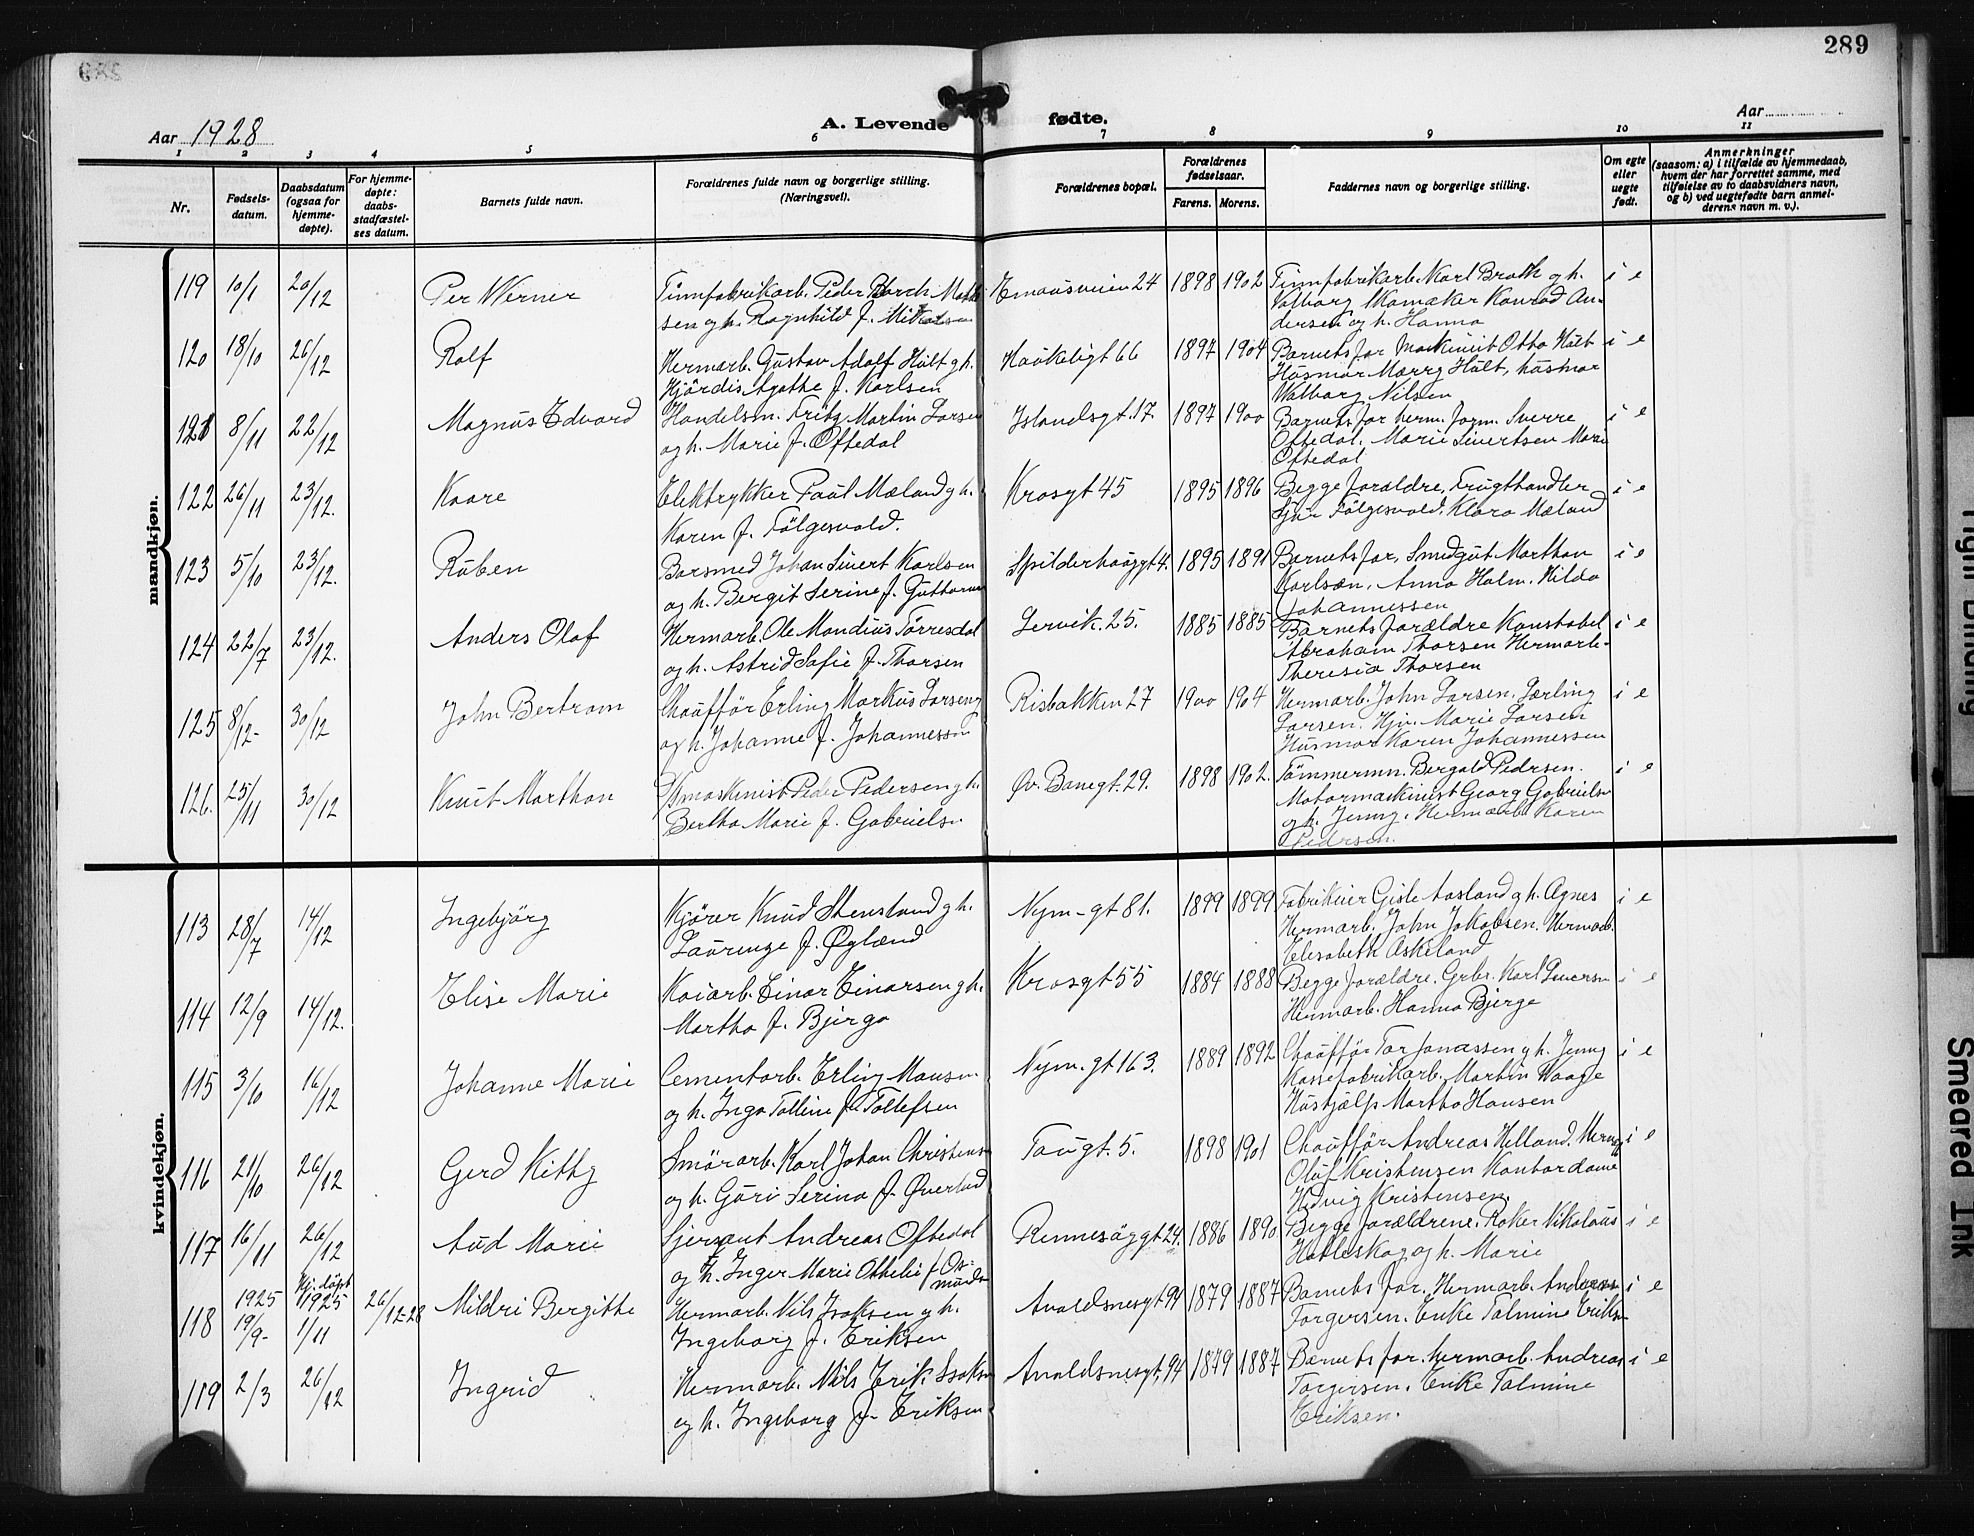 289
Aar 1928
A. Levende fødte.
Aar
1 2 3 4 5 6 7 8 9 10 11
Nr.
Fødsels-
datum.
Daabsdatum
(ogsaa for
hjemme-
døpte).
For hjemme-
døpte:
daabs-
stadfæstel-
ses datum.
Barnets fulde navn.
Forældrenes fulde navn og borgerlige stilling.
(Næringsvei).
Forældrenes bopæl.
Forældrenes
fødselsaar.
Farens. Morens.
Faddernes navn og borgerlige stilling.
Om egte
eller
uegte
født.
Anmerkninger
(saasom: a) i tilfælde av hjemmedaab,
hvem der har forrettet samme, med
tilføielse av to daabsvidners navn,
og b) ved uegtefødte barn anmel-
derens navn m. v.).
mandkjøn.
119 10/1 20/12 Per Werner
Tinnfabrikarb. Peder
sen og h. Ragnhild f.
Emausveien 24 1898 1902
Tinnfabrikarb. Karl Brath og h.
Valborg Skomaker Konrad An-
dersen og h. Hanna
i e
120 18/10 26/12 Rolf
Hermarb. Gustav Adolf Hult g h.
Hjørdis Agathe f. Karlsen
Haukeligt 66 1897 1904
Barnets far Maskinist Otto Hult
Husmor Marry Hult, husmor
Valborg Nilsen
i e
121 8/11 22/12 Magnus Edvard
Handelsm. Fritz Martin Larsen
og h. Marie f. Oftedal
Islandsgt. 17. 1897 1900
Barnets far herm. form. Sverre
Oftedal. Marie Sivertsen Marie
Oftedal
i e
122 26/11 23/12. Kaare
Elektrykker Paul Mæland g h.
Karen f. Følgesvold.
Krosgt 45 1895 1896
Begge forældre, Frugthandler
Følgesvold, Klara Mæland
i e
123 5/10 23/12. Ruben
Johan Sivert Karlsen
og h. Bergit Serine f.
Spilderhauggt 4. 1895 1891
Barnets far, Smedgut Marthon
Karlsen, Anna Holm. Hilda
Johannessen
i e
124 22/7 23/12. Anders Olaf
Hermarb. Ole Mandius Tørresdal
og h. Astrid Sofie f. Thorsen
Lervik. 25. 1885 1885
Barnets forældre Konstabel
Abraham Thorsen Hermarb.
Theresia Thorsen
i e
125 8/12- 30/12 John Bertram
Chauffør Erling Markus Larsen g
og h. Johanne f. Johannessen
Risbakken 27 1900 1904
Hermarb. John Larsen. Lærling
Larsen. Hjv. Marie Larsen
Husmor Karen Johannessen
i e
126. 25/11 30/12 Knut Marthon
Peder Pedersen g h.
Bertha Marie f. Gabrielsn
Øv. Banegt. 29. 1898 1902.
Tømmermn. Bergald Pedrsen.
Motormaskinist Georg Gabrielsn
og h. Jenny. Hermarb. Karen
Pedrsen.
i e
kvindekjøn.
113 28/7 14/12 Ingebjørg
Kjører Knud Stensland g h.
Laurenze f. Øglænd
Nym-gt 81. 1899 1899
Fabrikeier Gisle Aasland g h. Agnes
Hermarb. John Jakobsen. Hermarb.
Elisabeth Askeland
i e
114 12/9 14/12. Elise Marie
Kaiarb. Einar Einarsen g h.
Martha f. Bjerga
Krosgt 55 1884 1888
Begge forældre. Grbr. Karl
Hermarb. Hanna Bjerge
i e
115 3/10 16/12 Johanne Marie
Cementarb. Erling
og h. Inga Talline f. Tollefsen
Nym. gt 163. 1889 1892
Chauffør Tor Jonassen g h. Jenny
Kassefabrikarb. Martin Waage
Hushjælp Martha Hansen
i e
116 21/10 26/12 Gerd Kitty
Smørarb. Karl Johan Christensn
og h. Guri Serina f. Øverland
Taugt. 5. 1898 1901
Chauffør Andreas Helland.
Oluf Kristensen Kontordame
Hedvig Kristensen.
i e
117 16/11 26/12 Aud Marie
Sjersant Andreas Oftedal
og h. Inger Marie Othelie f. Os-
munds
Rennesøygt 24. 1886 1890.
Begge forældrene. Røker Nikolaus
Hatleskog og h. Marie
i e
118 1925 19/9- Hj. døpt 1925 1/11 26/12-28 Mildri Bergithe
Hermarb. Nils Isaksen g h.
Ingeborg f. Eriksen
Avaldsnesgt 94 1879 1887
Barnets far. Hermarb. Andreas
Torgersen. Enke Talmine Eriksn
i e
119 2/3 26/12 Ingrid
Hermarb. Nils Erik Isaksn
og h. Ingeborg f. Eriksen
Avaldsnesgt. 94 1879 1887
Barnets far. hermarb. Andreas
Torgersen. Enke Talmine
Eriksen.
i e
Tight Binding
Smeared Ink